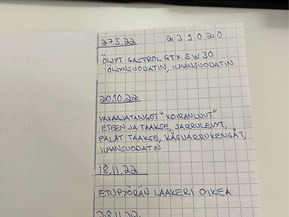 27.5.22 231020
ÖLJYT CASTROL GTX 5W30
ÖLJYNSUODATIN, ILMANSUODATIN
20.10.22
VAKAAJATANGOT "KOIRANLUUT"
ETEEN JA TAAKSE, JARRULEVYT,
PALAT TAAKSE, KÄSIJARRUKENGÄT,
ILMANSUODATIN
18.11.22
ETUPYÖRÄN LAAKERI OIKEA
28.11.22